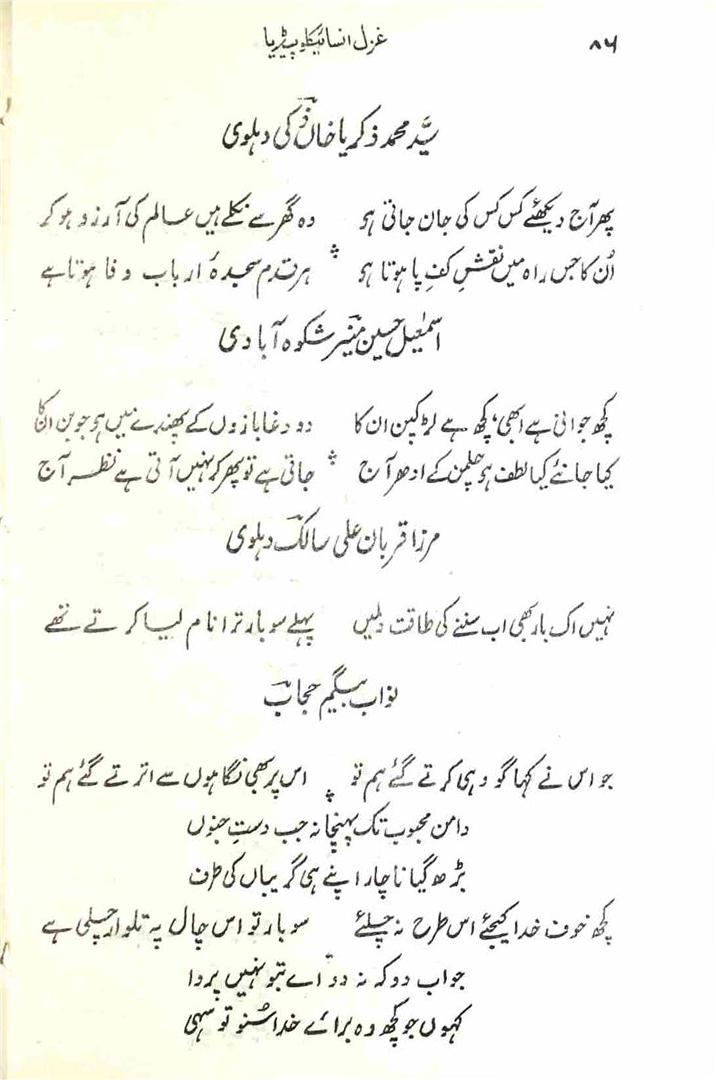 ۸۶ غزل انسائیکلو پیڈیا
سیّد محمد ذکریا خاں ذکی دہلوی
پھر آج دیکھئے کس کس کی جان جاتی ہو وہ گھر سے نکلے ہیں عالم کی آرزو ہو کر
اُن کا جس راہ میں نقشِ کفِ پا ہوتا ہو ہر قدم سجدۂ ارباب وفا ہوتا ہے
اسمٰعیل حسین منیر شکوہ آبادی
کچھ جوانی ہے ابھی، کچھ ہے لڑکپن ان کا دو دغا بازوں کے پھندے میں ہو جوبن ان کا
کیا جانئے کیا لطف ہو چلمن کے ادھر آج جاتی ہے تو پھر کر نہیں آتی ہے نظر آج
مرزا قربان علی سالک دہلوی
نہیں اک بار بھی اب سننے کی طاقت دل میں پہلے سو بار ترا نام لیا کرتے تھے
نواب بیگم حجاب
جو اس نے کہا گو وہی کرتے گئے ہم تو اس پر بھی نگاہوں سے اترتے گئے ہم تو
دامن محبوب تک پہنچا نہ جب دستِ جنوں
بڑھ گیا ناچار اپنے ہی گریباں کی طرف
کچھ خوف خدا کیجئے اس طرح نہ چلئے سو بار تو اس چال پہ تلوار چلی ہے
جواب دو کہ نہ دو اے بتو نہیں پروا
کہوں جو کچھ وہ برائے خدا سُنو تو سہی